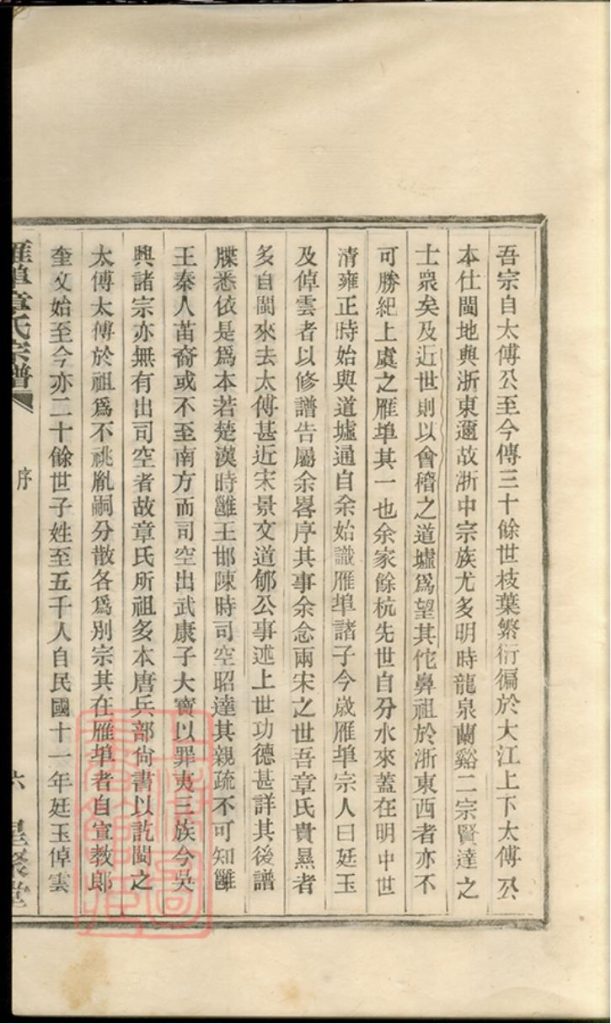 吾宗自太傅公至今傳三十餘世枝葉繁衍徧於大江上下太傅公
本仕閩地與浙東邇故浙中宗族尤多明時龍泉蘭谿二宗賢達之
士衆矣及近世則以會稽之道墟爲望其佗鼻祖於浙東西者亦不
可勝紀上虞之雁埠其一也余家餘杭先世自分水來蓋在明中世
清雍正時始與道墟通自余始識雁埠諸子今歲雁埠宗人曰廷玉
及倬雲者以修譜告屬余畧序其事余念兩宋之世吾章氏貴㬥者
多自閩來去太傅甚近宋景文道郇公事述上世功德甚詳其後譜
牒悉依是爲本若楚漢時雝王邯陳時司空昭達其親疏不可知雝
王秦人苗裔或不至南方而司空出武康子大寶以罪夷三族今吳
興諸宗亦無有出司空者故章氏所祖多本唐兵部尙書以訖閩之
太傅太傅於祖爲不祧胤嗣分散各爲別宗其在雁埠者自宣教郎
奎文始至今亦二十餘世子姓至五千人自民國十一年廷玉倬雲
雁埠章氏宗譜
序
六
星聚堂